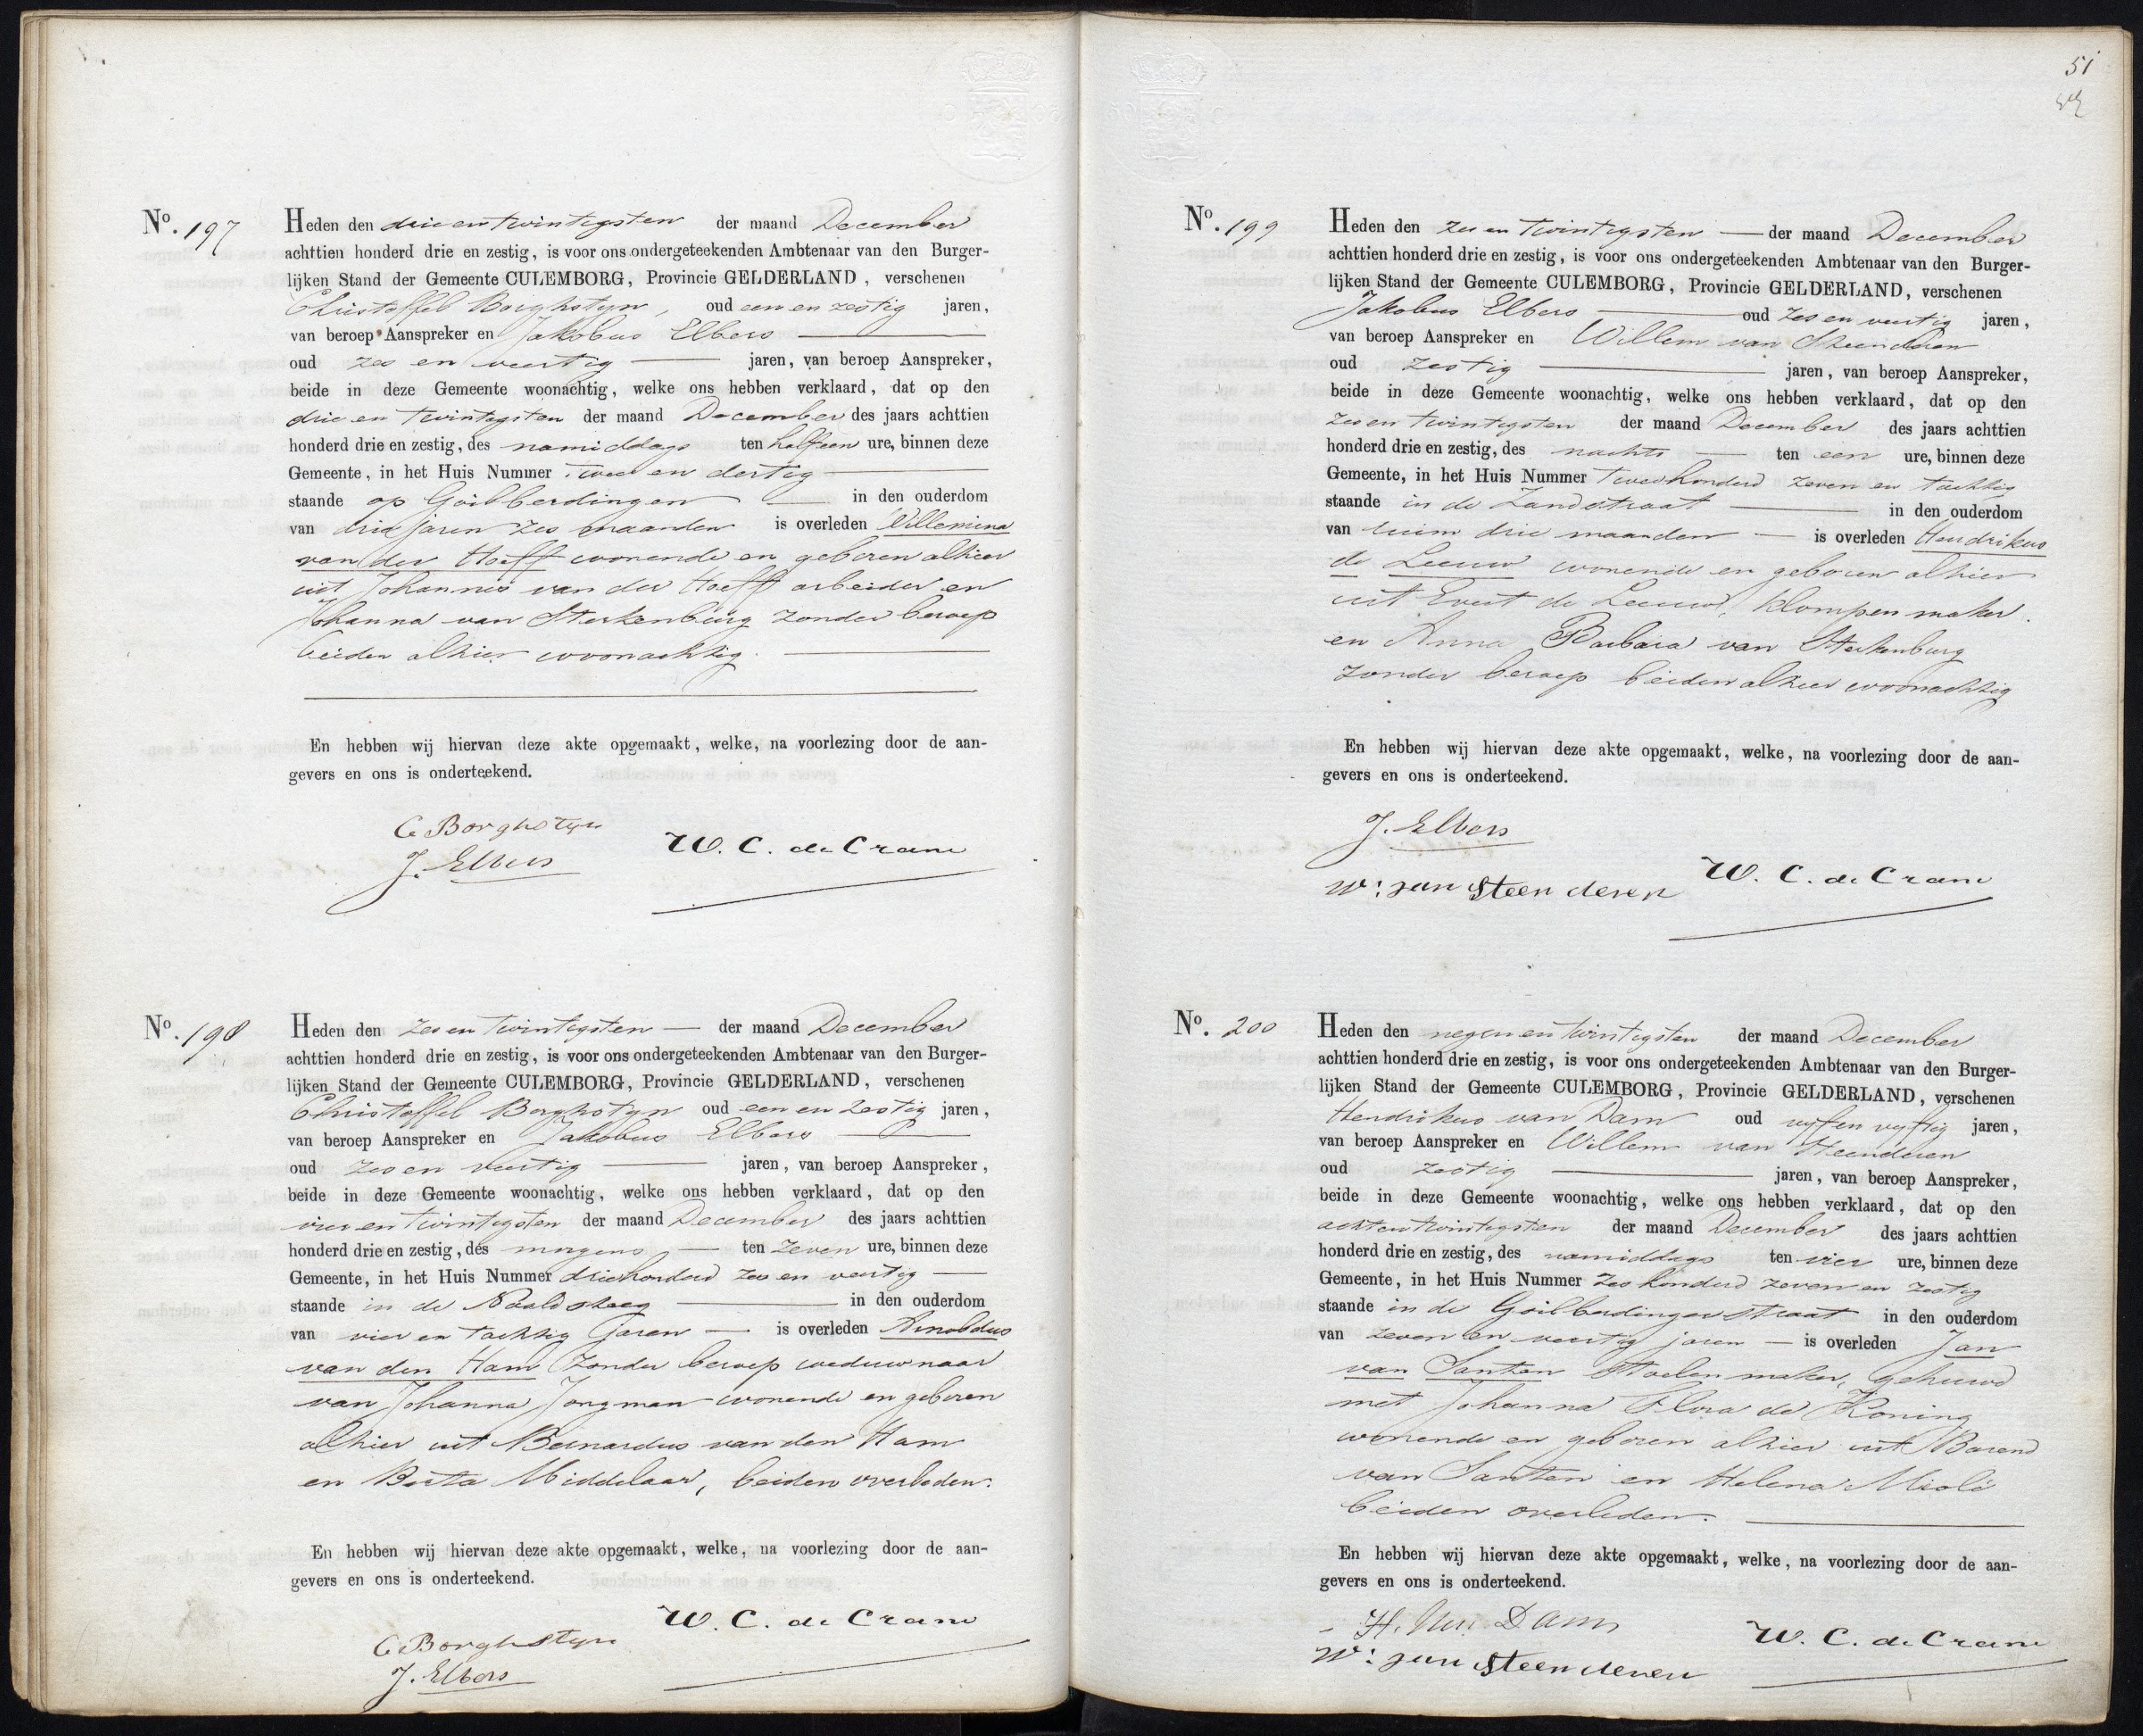 No. 197
Heden den drieentwintigsten der maand December
achttien honderd drie en zestig, is voor ons ondergeteekenden Ambtenaar van den Burger-
lijken Stand der Gemeente CULEMBORG, Provincie GELDERLAND, verschenen
Christoffel Borghstyn, oud een en zestig jaren,
van beroep Aanspreker en Jakobus Elbers
oud zes en veertig jaren, van beroep Aanspreker,
beide in deze Gemeente woonachtig, welke ons hebben verklaard, dat op den
drie en twintigsten der maand December des jaars achttien
honderd drie en zestig, des namiddags ten halfeen ure, binnen deze
Gemeente, in het Huis Nummer twee en dertig
staande op Goilberdingen in den ouderdom
van drie jaren zes maanden is overleden Willemina
van der Hoeff wonende en geboren alhier
uit Johannes van der Hoeff arbeider en
Johanna van Sterkenburg zonder beroep
beiden alhier woonachtig.
En hebben wij hiervan deze akte opgemaakt, welke, na voorlezing door de aan-
gevers en ons is onderteekend.
C Borghstyn
J. Elbers
W. C. de Crane
No. 198
Heden den zes en twintigsten der maand December
achttien honderd drie en zestig, is voor ons ondergeteekenden Ambtenaar van den Burger-
lijken Stand der Gemeente CULEMBORG, Provincie GELDERLAND, verschenen
Christoffel Borghstyn oud een en zestig jaren,
van beroep Aanspreker en Jakobus Elbers
oud zes en veertig jaren, van beroep Aanspreker,
beide in deze Gemeente woonachtig, welke ons hebben verklaard, dat op den
vier en twintigsten der maand December des jaars achttien
honderd drie en zestig, des morgens ten zeven ure, binnen deze
Gemeente, in het Huis Nummer driehonderd zes en veertig
staande in de Naaldsteeg in den ouderdom
van vier en tachtig jaren is overleden Arnoldus
van den Ham zonder beroep weduwnaar
van Johanna Jongman wonende en geboren
alhier uit Bernardus van den Ham
en Beata Middelaar, beiden overleden.
En hebben wij hiervan deze akte opgemaakt, welke, na voorlezing door de aan-
gevers en ons is onderteekend.
W. C. de Crane
C Borghstyn
J. Elbers
51
No. 199
Heden den zes en twintigsten der maand December
achttien honderd drie en zestig, is voor ons ondergeteekenden Ambtenaar van den Burger-
lijken Stand der Gemeente CULEMBORG, Provincie GELDERLAND, verschenen
Jakobus Elbers oud zes en veertig jaren,
van beroep Aanspreker en Willem van Steenderen
oud zestig jaren, van beroep Aanspreker,
beide in deze Gemeente woonachtig, welke ons hebben verklaard, dat op den
zes en twintigsten der maand December des jaars achttien
honderd drie en zestig, des nachts ten een ure, binnen deze
Gemeente, in het Huis Nummer tweehonderd zeven en tachtig
staande in de Zandstraat in den ouderdom
van ruim drie maanden is overleden Hendrikus
de Leeuw wonende en geboren alhier
uit Evert de Leeuw, klompenmaker.
en Anna Barbara van Sterkenburg
zonder beroep beiden alhier woonachtig
En hebben wij hiervan deze akte opgemaakt, welke, na voorlezing door de aan-
gevers en ons is onderteekend.
J. Elbers
W: van Steenderen
W. C. de Crane
No. 200
Heden den negen en twintigsten der maand December
achttien honderd drie en zestig, is voor ons ondergeteekenden Ambtenaar van den Burger-
lijken Stand der Gemeente CULEMBORG, Provincie GELDERLAND, verschenen
Hendrikus van Dam oud vyf en vyftig jaren,
van beroep Aanspreker en Willem van Steenderen
oud zestig jaren, van beroep Aanspreker,
beide in deze Gemeente woonachtig, welke ons hebben verklaard, dat op den
achtentwintigsten der maand December des jaars achttien
honderd drie en zestig, des namiddags ten vier ure, binnen deze
Gemeente, in het Huis Nummer zeshonderd zeven en zestig
staande in de Goilberdingerstraat in den ouderdom
van zeven en veertig jaren is overleden Jan
van Santen Stoelenmaker, gehuwd
met Johanna Flora de Koning
wonende en geboren alhier uit Barend
van Santen en Helena Mioli
beiden overleden.
En hebben wij hiervan deze akte opgemaakt, welke, na voorlezing door de aan-
gevers en ons is onderteekend.
H. van Dam
W: van Steenderen
W. C. de Crane